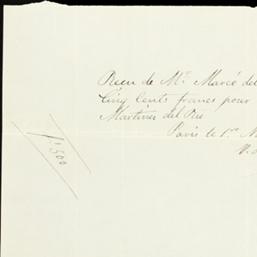 Recu de Mr. Marcó del
Cinq Cents francs pour
Martinez del Rio
Paris le 1er M
f. 500